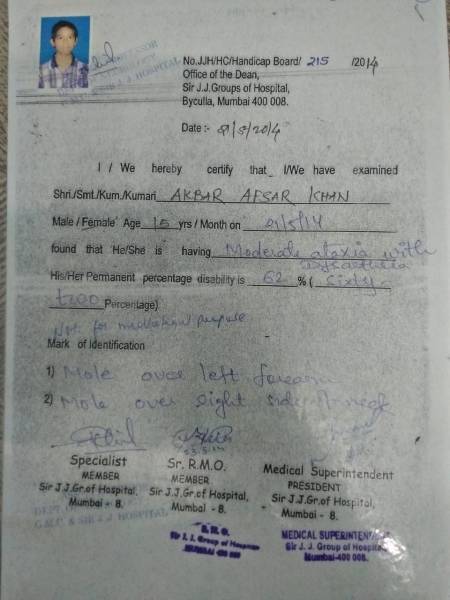 No.JJH/HC/Handicap Board/ 215 /2014
Office of the Dean,
Sir J.J.Groups of Hospital,
Byculla, Mumbai 400 008.
Date :- /5/2014
I / We hereby certify that I/We have examined
Shri./Smt./Kum./Kumari AKBAR AFSAR KHAN
Male / Female Age 15 yrs / Month on 21/5/14
found that He/She is having Moderate ataxia with
dysarthria
His/Her Permanent percentage disability is 62 % ( Sixty
two Percentage)
Not for medicolegal purpose
Mark of Identification
1) Mole over left forearm
2) Mole over right side of neck
Specialist
MEMBER
Sir J.J.Gr.of Hospital,
Mumbai - 8.
Sr. R.M.O.
MEMBER
Sir J.J.Gr.of Hospital,
Mumbai - 8.
Medical Superintendent
PRESIDENT
Sir J.J.Gr.of Hospital,
Mumbai - 8.
G.M.C. & SIR J.J. HOSPITAL
Sir J. J. Group of Hospital
MUMBAI-400 008
MEDICAL SUPERINTENDENT
Sir J. J. Group of Hospital
Mumbai-400 008.